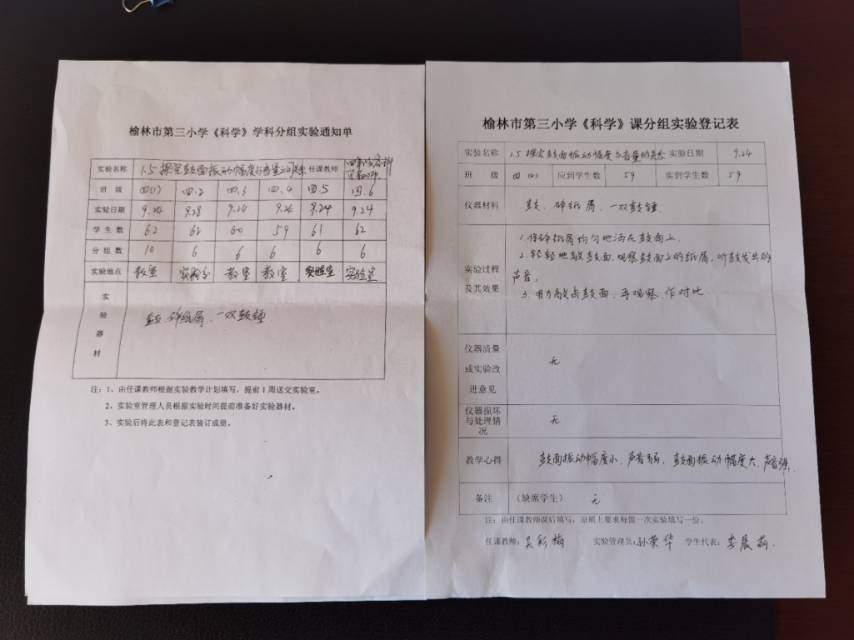 榆林市第三小学《科学》学科分组实验通知单
实验名称 1.5探究鼓面振动幅度与音量的关系 任课教师
班 级 四(1) 四.2 四.3 四.4 四.5 四.6
实验日期 9.24 9.28 9.24 9.26 9.24 9.24
学生数 62 62 60 59 61 62
分组数 10 6 6 6 6 6
实验地点 教室 实验室 教室 教室 实验室 实验室
实验器材 鼓、碎纸屑、一双鼓锤
注：1、由任课教师根据实验教学计划填写，提前1周送交实验室。
2、实验室管理人员根据实验时间提前准备好实验器材。
3、实验后将此表和登记表装订成册。
榆林市第三小学《科学》课分组实验登记表
实验名称 1.5探究鼓面振动幅度与音量的关系 实验日期 9.24
班 级 四(4) 应到学生数 59 实到学生数 59
仪器材料 鼓、碎纸屑、一双鼓锤
实验过程及其效果
1.将碎纸屑均匀地洒在鼓面上.
2.轻轻地敲鼓面,观察鼓面上的纸屑,听鼓发出的
声音.
3.用力敲击鼓面,再观察,作对比.
仪器质量或实验改进意见 无
仪器损坏与处理情况 无
教学心得 鼓面振动幅度小,声音弱,鼓面振动幅度大,声音强.
备注 （缺席学生） 无
注：由任课教师课后填写，原则上要求每做一次实验填写一份。
任课教师：吴彩梅 实验管理员：孙荣华 学生代表：